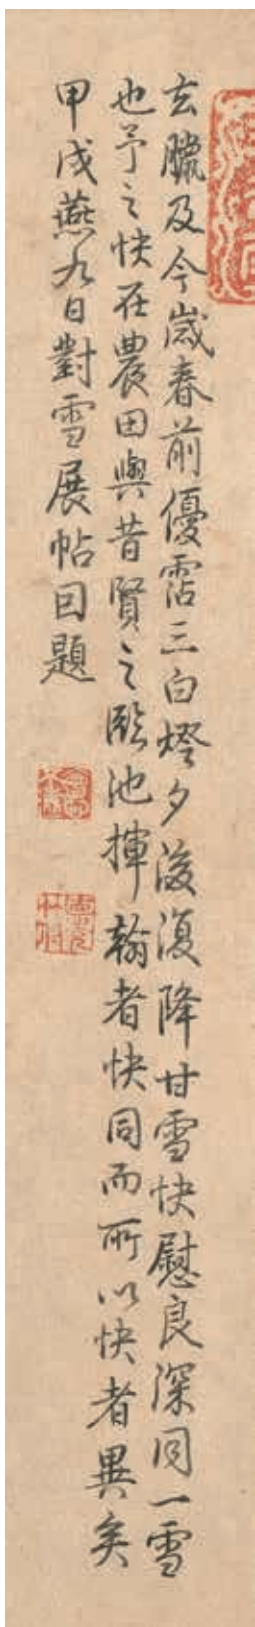 玄臘及今歲春前優霑三白燈夕後復降甘雪快慰良深同一雪
也予之快在農田與昔賢之臨池揮翰者快同而所以快者異矣
甲戌燕九日對雪展帖因題